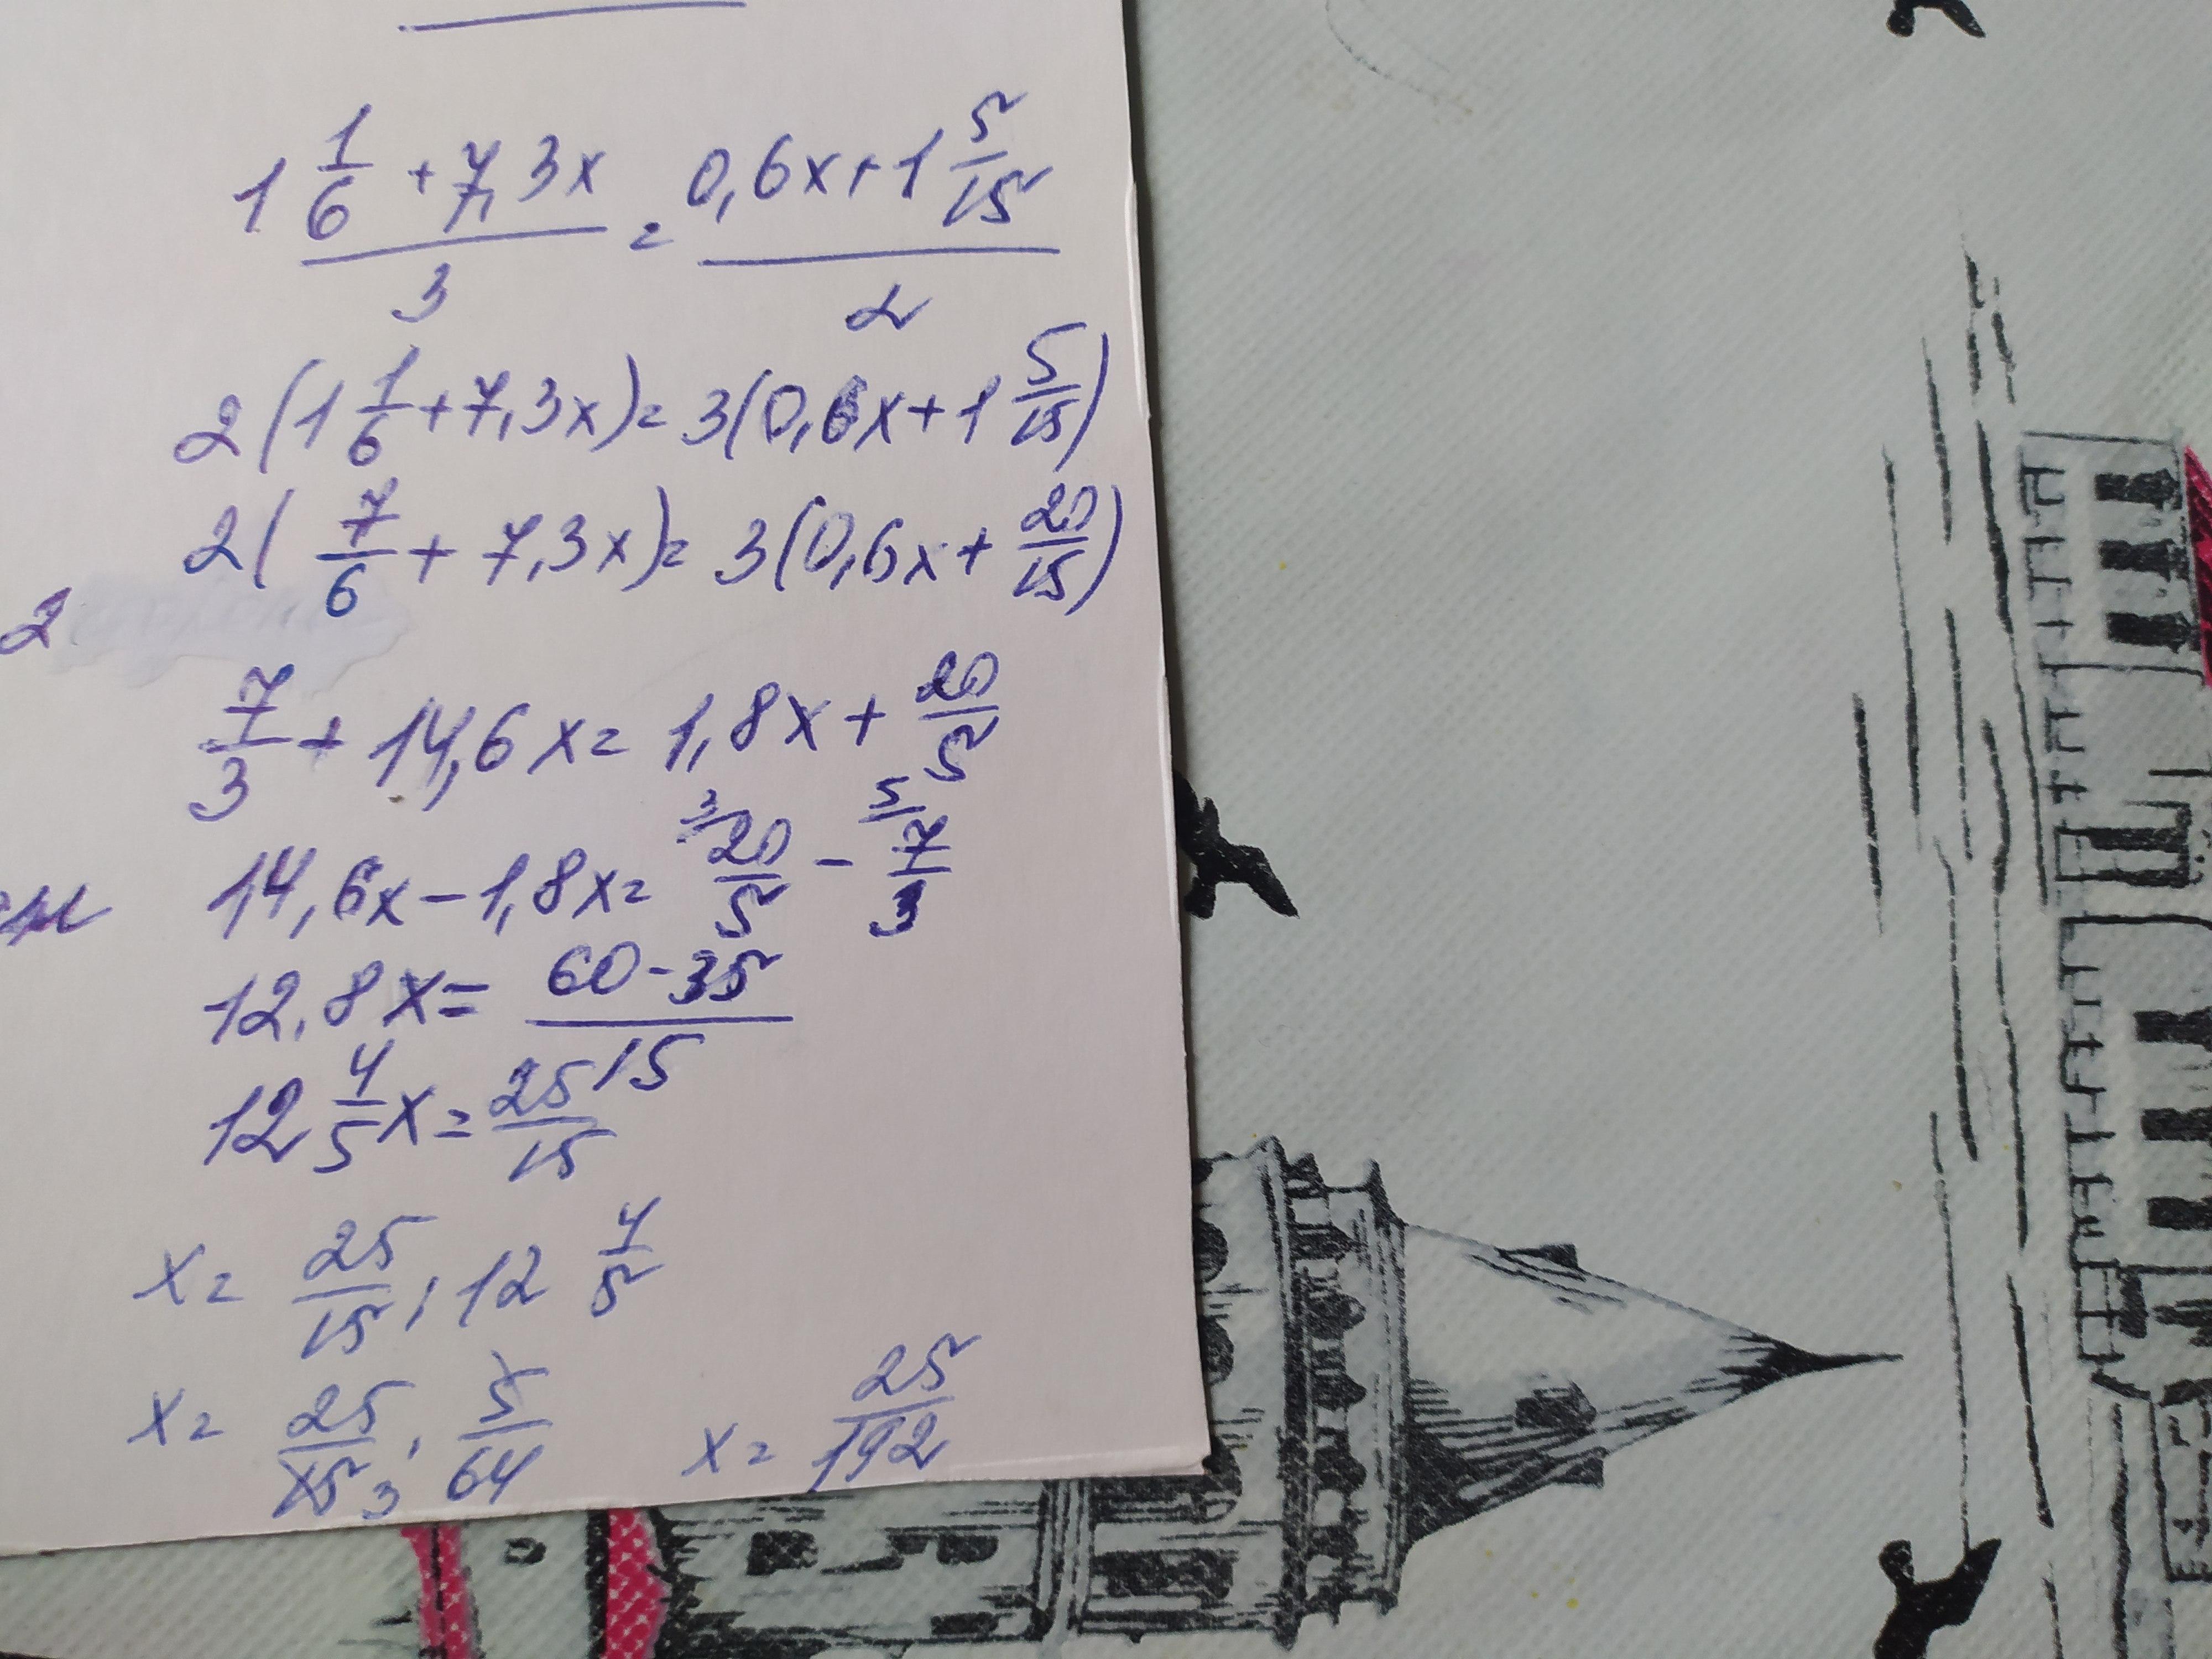 1 1/6 + 7,3x / 3 = 0,6x + 1 5/15 / 2
2(1 1/6 + 7,3x) = 3(0,6x + 1 5/15)
2(7/6 + 7,3x) = 3(0,6x + 20/15)
2
7/3 + 14,6x = 1,8x + 20/5
14,6x - 1,8x = 3/ 20/5 - 5/ 7/3
12,8x = 60-35 / 15
12 4/5 x = 25/15
x = 25/15 : 12 4/5
x = 25/15 3 · 5/64 x = 25/192